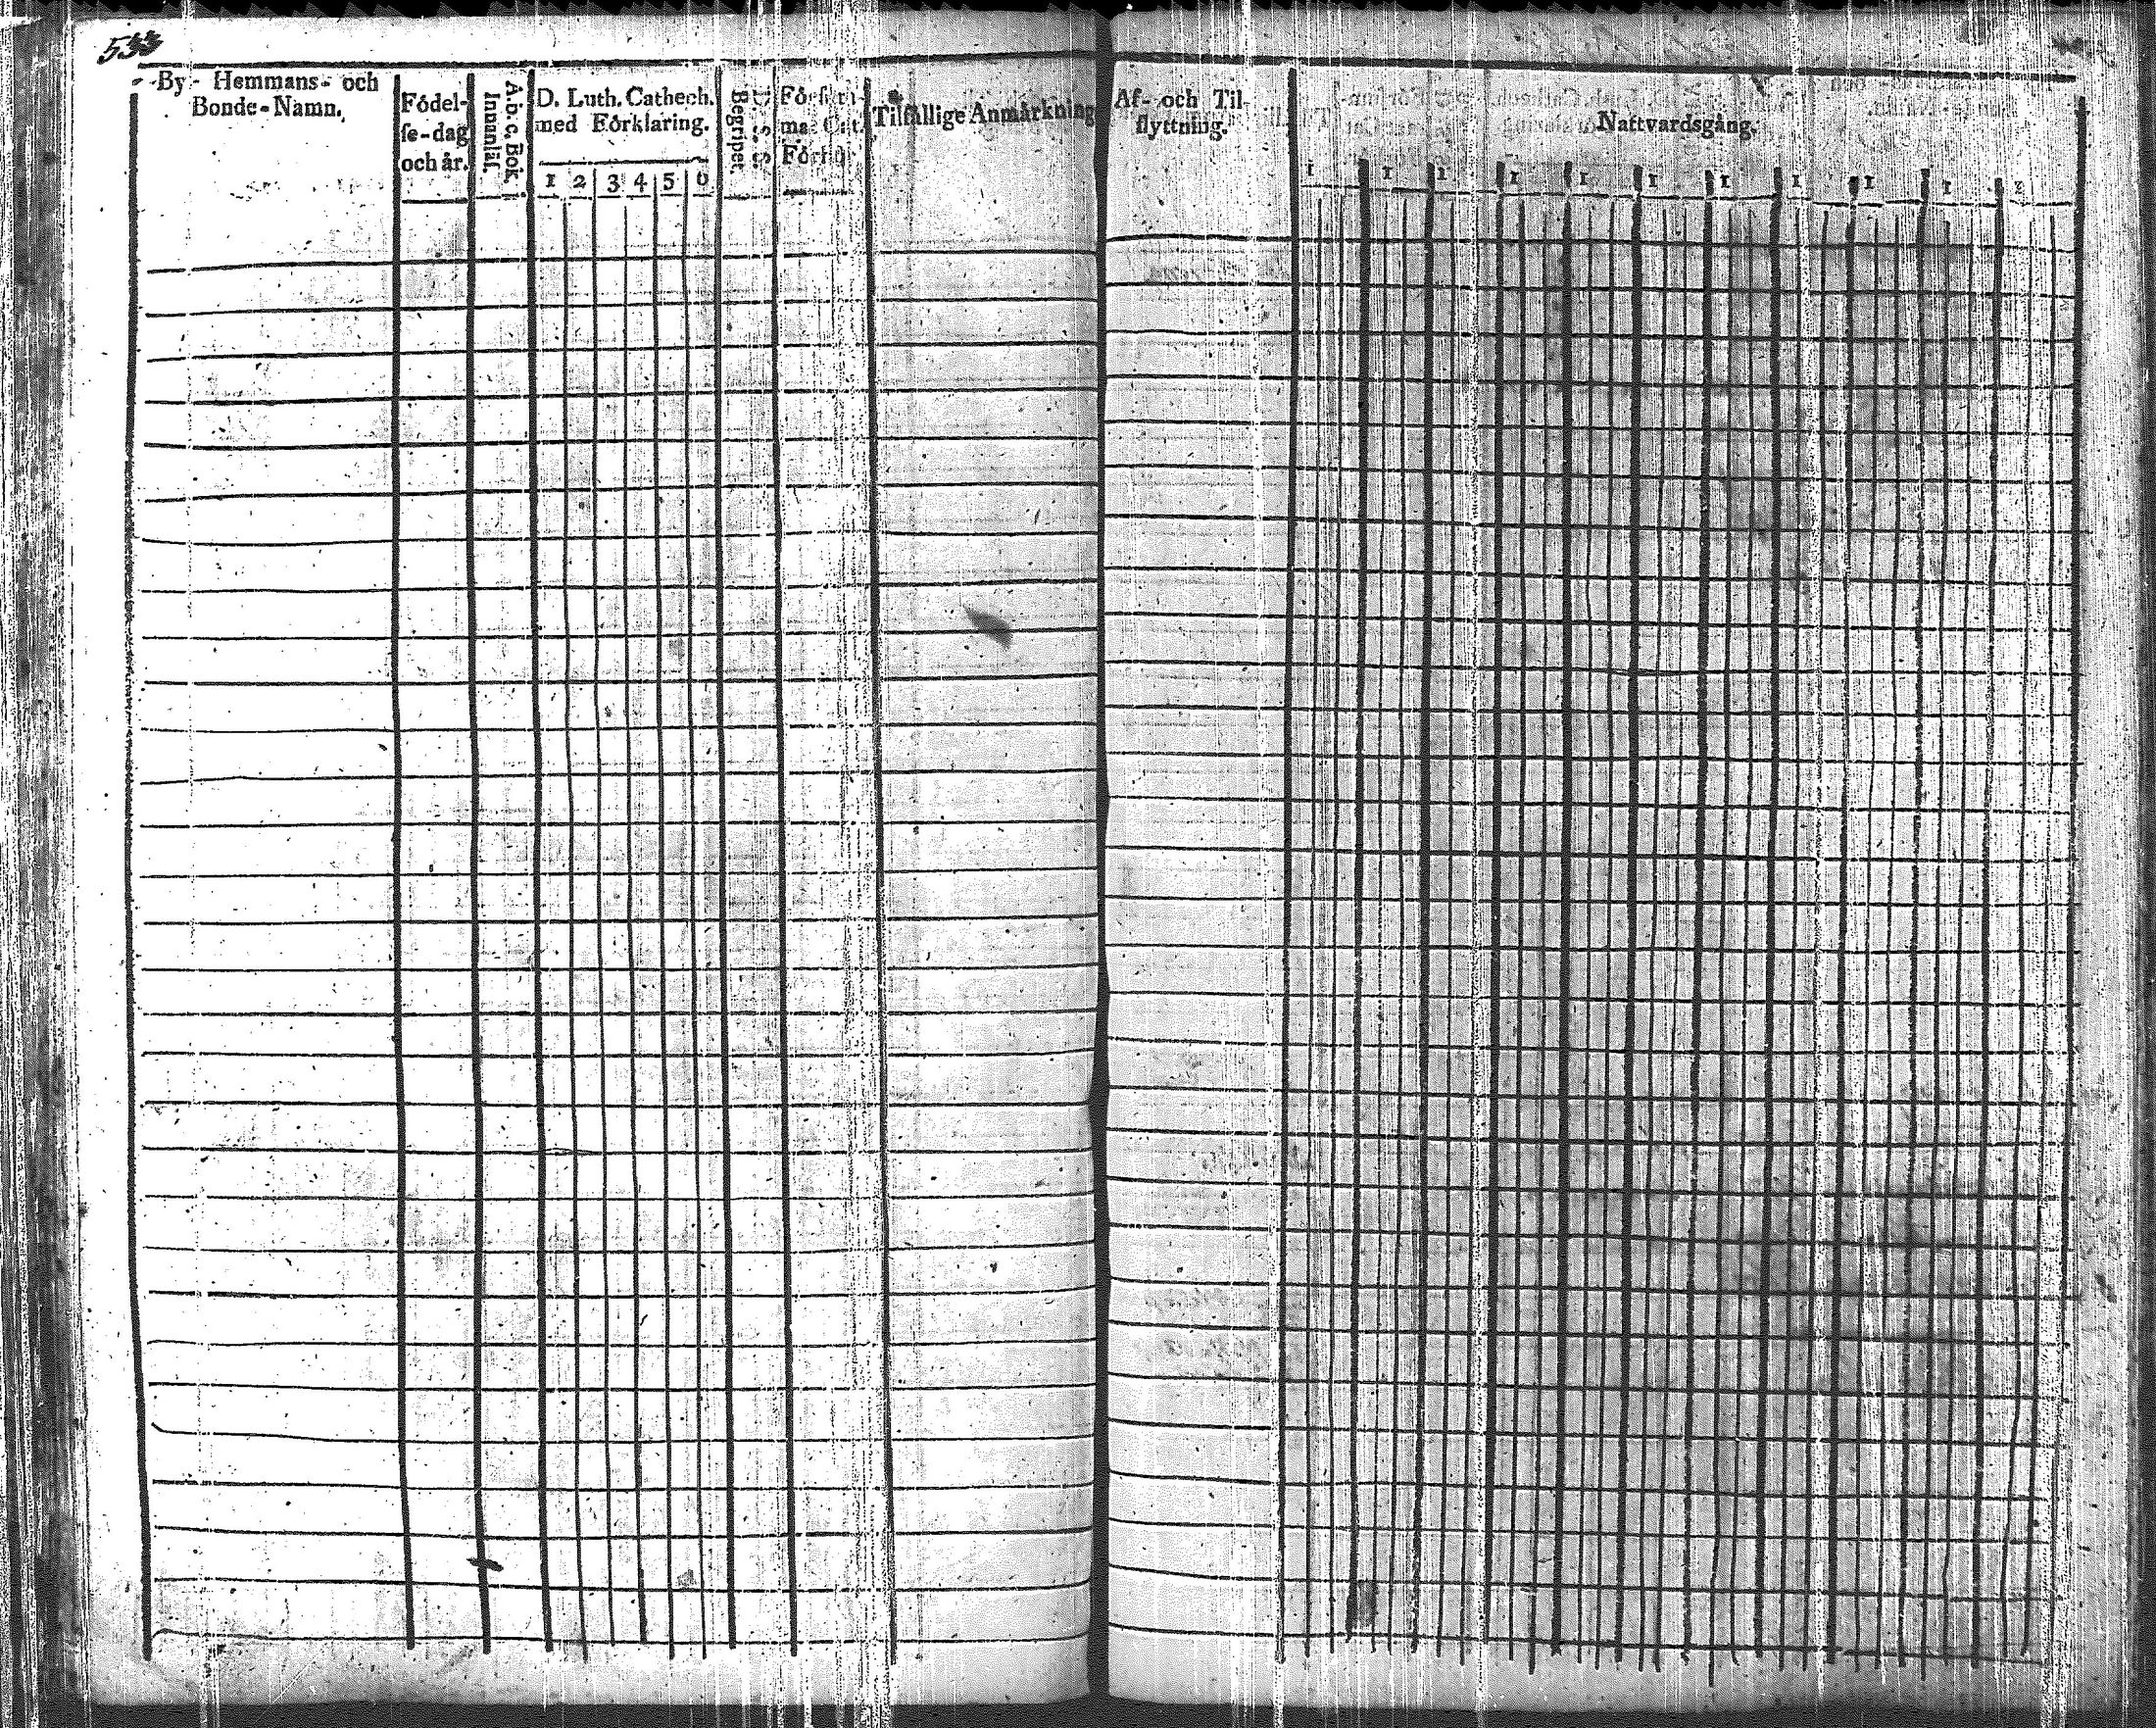 533
By- Hemmans- och
Bonde-Namn.
Födel-
se-dag
och år.
A. b. c. Bok, i
Innanläs.
D. Luth. Cathech.
med Förklaring.
1 2 3 4 5 6
Begripet.
Förhör.
Tilfällige Anmärkning
Af- och Til-
flyttning.
Nattvardsgång.
1 1 1 1 1 1 1 1 1 1 1